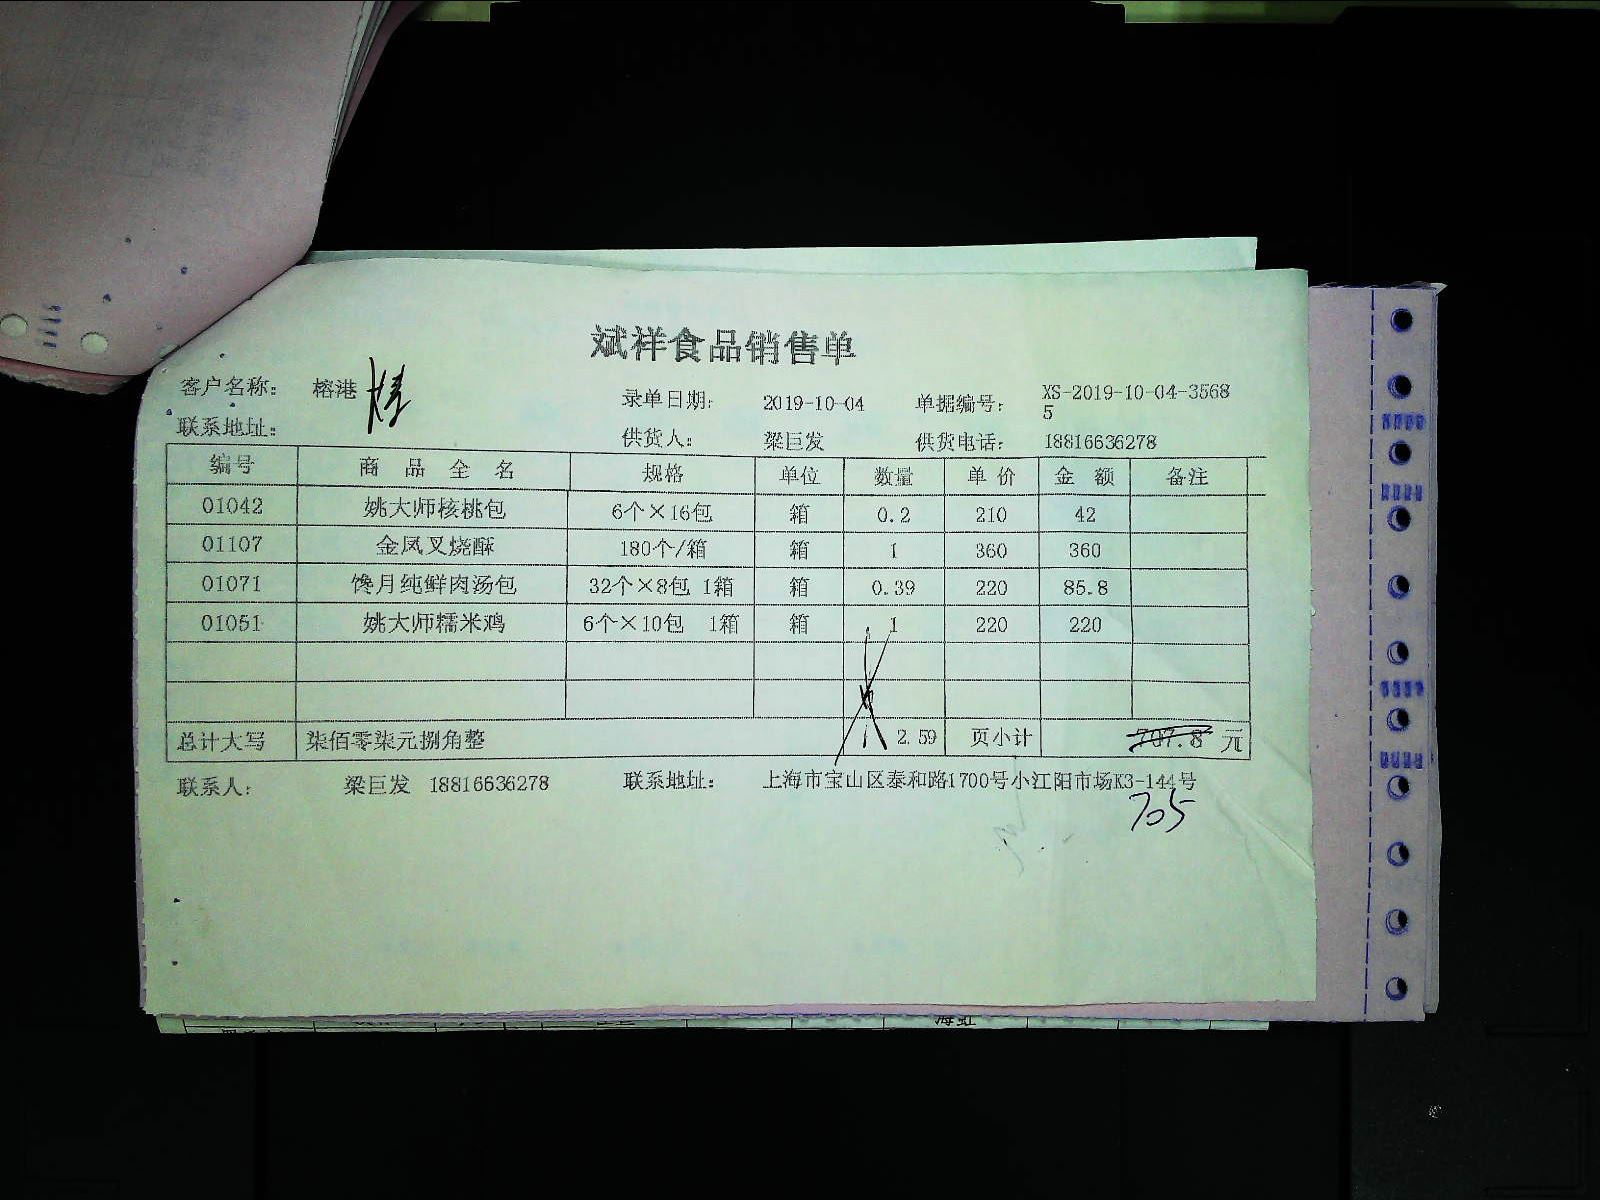 斌祥食品销售单
客户名称： 榕港 录单日期： 2019-10-04 单据编号： XS-2019-10-04-3568
5
联系地址： 供货人： 梁巨发 供货电话： 18816636278
编号 商 品 全 名 规格 单位 数量 单 价 金 额 备注
01042 姚大师核桃包 6个×16包 箱 0.2 210 42
01107 金凤叉烧酥 180个/箱 箱 1 360 360
01071 馋月纯鲜肉汤包 32个×8包 1箱 箱 0.39 220 85.8
01051 姚大师糯米鸡 6个×10包 1箱 箱 1 220 220
总计大写 柒佰零柒元捌角整 2.59 页小计 707.8 元
联系人： 梁巨发 18816636278 联系地址： 上海市宝山区泰和路1700号小江阳市场K3-144号
705